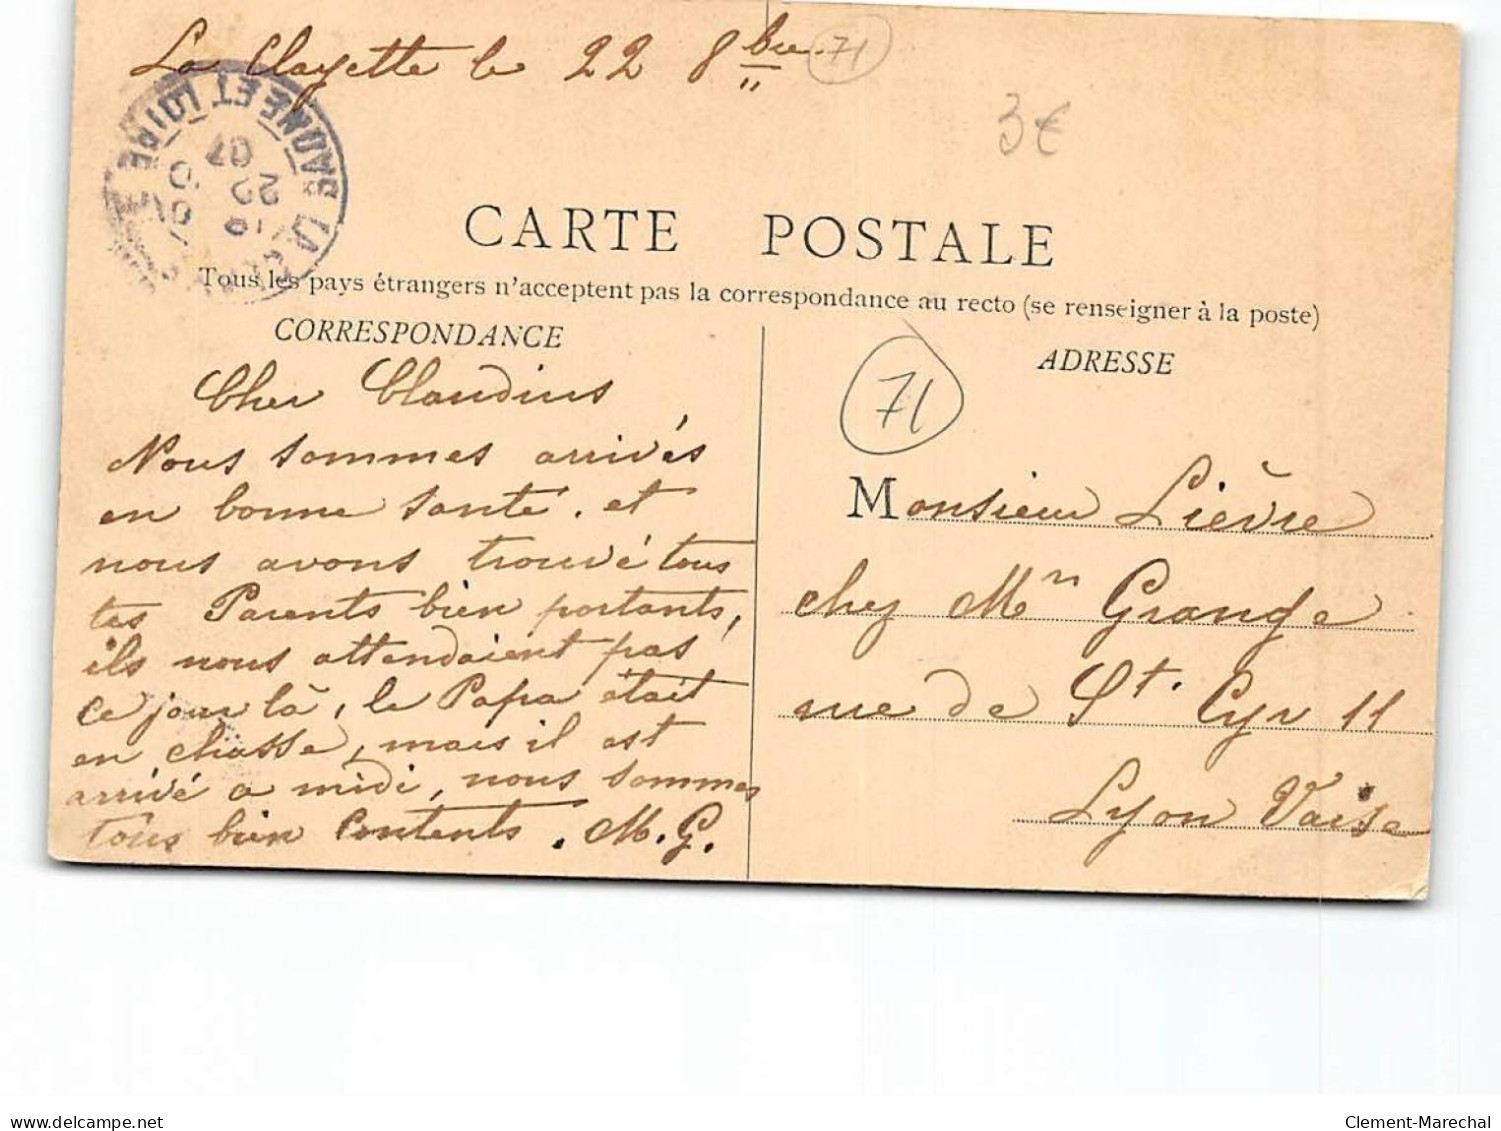 La Clayette le 22 8bre
71
3€
SAONE ET LOIRE
LA
22
07
CARTE POSTALE
Tous les pays étrangers n'acceptent pas la correspondance au recto (se renseigner à la poste)
CORRESPONDANCE
ADRESSE
71
Cher Claudius
Nous sommes arrivés
en bonne santé. et
nous avons trouvé tous
tes Parents bien portants,
ils nous attendaient pas
ce jour là, le Papa était
en chasse, mais il est
arrivé a midi, nous sommes
tous bien Contents. M.G.
Monsieur Lièvre
chez Mr Grange
rue de St. Cyr 11
Lyon Vaise
www.delcampe.net
Clement-Marechal